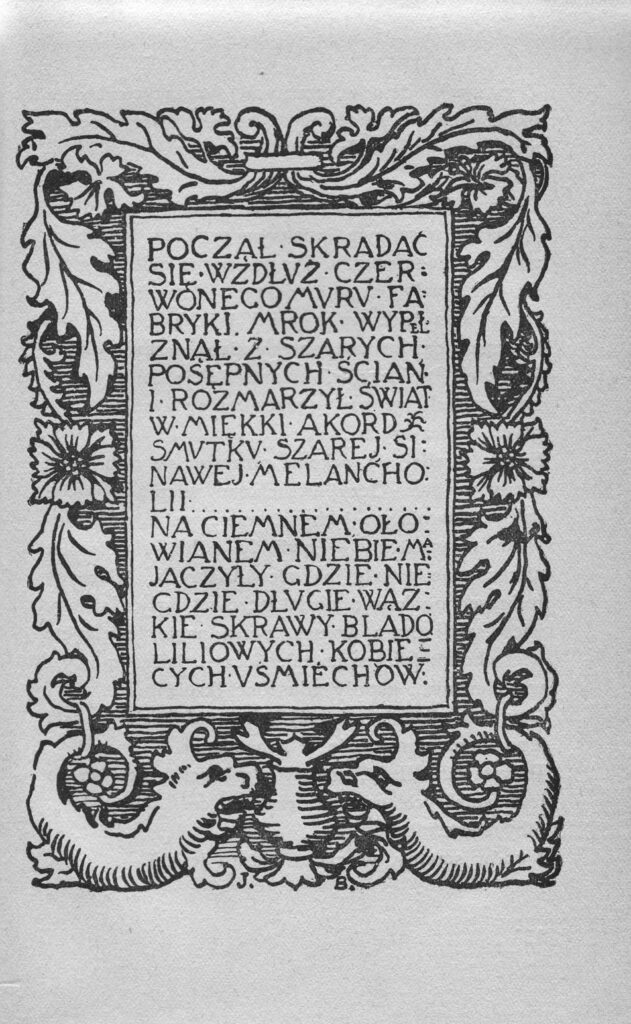 POCZĄŁ·SKRADAĆ
SIĘ·WZDŁVŻ·CZER:
WONEGO MVRV·FA:
BRYKI. MROK·WYPEŁ
ZNĄŁ·Z·SZARYCH·
POSĘPNYCH·ŚCIAN·
I·ROZMARZYŁ·ŚWIAT
W·MIĘKKI·AKORD
SMVTKV·SZAREJ·SI:
NAWEJ·MELANCHO:
LII....................
NA CIEMNEM·OŁO:
WIANEM·NIEBIE·MA:
JACZYŁY·GDZIE·NIE
GDZIE·DŁVGIE·WĄZ:
KIE·SKRAWY·BLADO
LILIOWYCH·KOBIE=
CYCH·VŚMIECHÓW:
J. B.